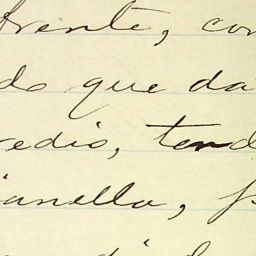 frente, con
do que da
redio, tend
janella, f